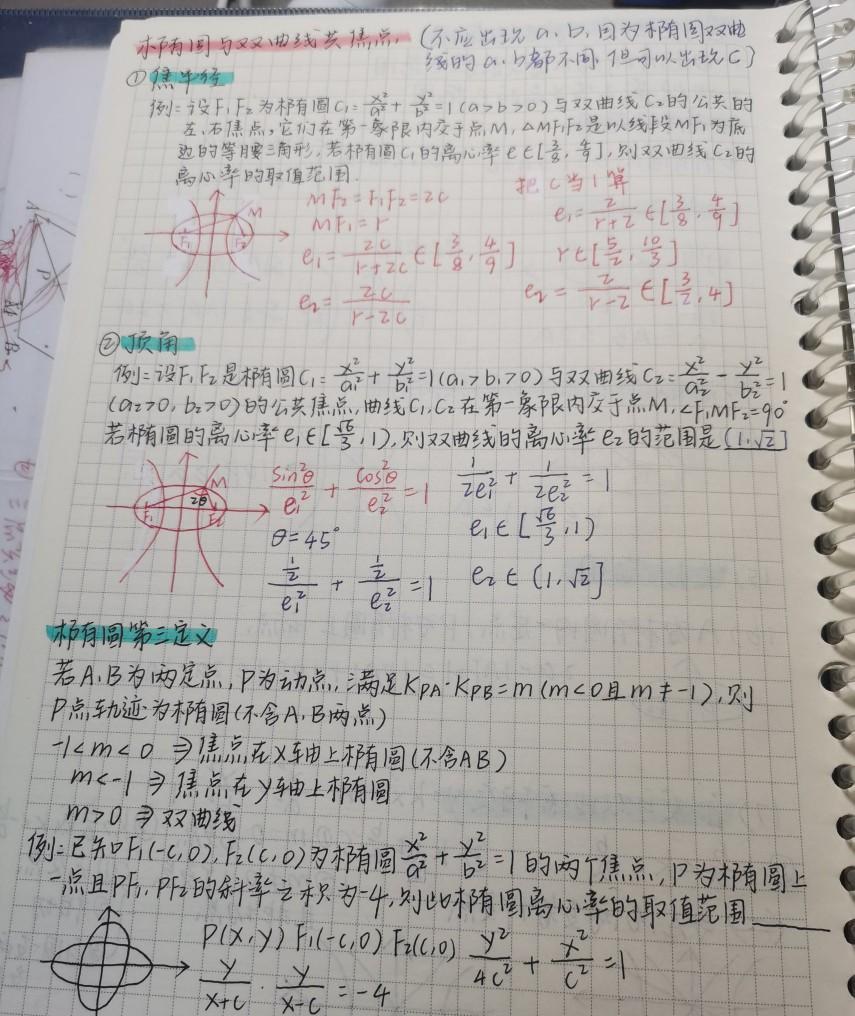 椭圆与双曲线共焦点.(不应出现a.b,因为椭圆双曲
线的a.b都不同,但可以出现c)
①焦半径
例:设F₁F₂为椭圆C₁:x²/a²+y²/b²=1(a>b>0)与双曲线C₂的公共的
左、右焦点,它们在第一象限内交于点M,△MF₁F₂是以线段MF₁为底
边的等腰三角形,若椭圆C₁的离心率e∈[3/8,4/9],则双曲线C₂的
离心率的取值范围.
把c当1算
MF₂=F₁F₂=2c
MF₁=r
e₁=2c/(r+2c)∈[3/8,4/9]
e₂=2c/(r-2c)
e₁=2/(r+2)∈[3/8,4/9]
r∈[5/2,10/3]
e₂=2/(r-2)∈[3/2,4]
M
F₁ F₂
②顶角
例:设F₁F₂是椭圆C₁:x²/a₁²+y²/b₁²=1(a₁>b₁>0)与双曲线C₂:x²/a₂²-y²/b₂²=1
(a₂>0,b₂>0)的公共焦点,曲线C₁,C₂在第一象限内交于点M,∠F₁MF₂=90°
若椭圆的离心率e₁∈[√6/3,1),则双曲线的离心率e₂的范围是(1,√2]
M
2θ
F₁ F₂
sin²θ/e₁²+cos²θ/e₂²=1
θ=45°
(1/2)/e₁²+(1/2)/e₂²=1
1/2e₁²+1/2e₂²=1
e₁∈[√6/3,1)
e₂∈(1,√2]
椭圆第三定义
若A,B为两定点,P为动点,满足K_PA·K_PB=m(m<0且m≠-1),则
P点轨迹为椭圆(不含A,B两点)
-1<m<0⇒焦点在x轴上椭圆(不含AB)
m<-1⇒焦点在y轴上椭圆
m>0⇒双曲线
例:已知F₁(-c,0),F₂(c,0)为椭圆x²/a²+y²/b²=1的两个焦点,P为椭圆上
一点且PF₁,PF₂的斜率之积为-4,则此椭圆离心率的取值范围____
P(x,y) F₁(-c,0) F₂(c,0) y²/4c²+x²/c²=1
y/(x+c)·y/(x-c)=-4